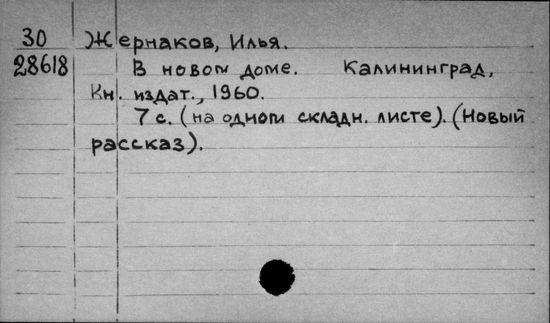 30 Жернаков, Илья.
28618 В новом доме. Калининград,
Кн. издат., 1960.
7 с. (на одном складн. листе). (Новый
рассказ).